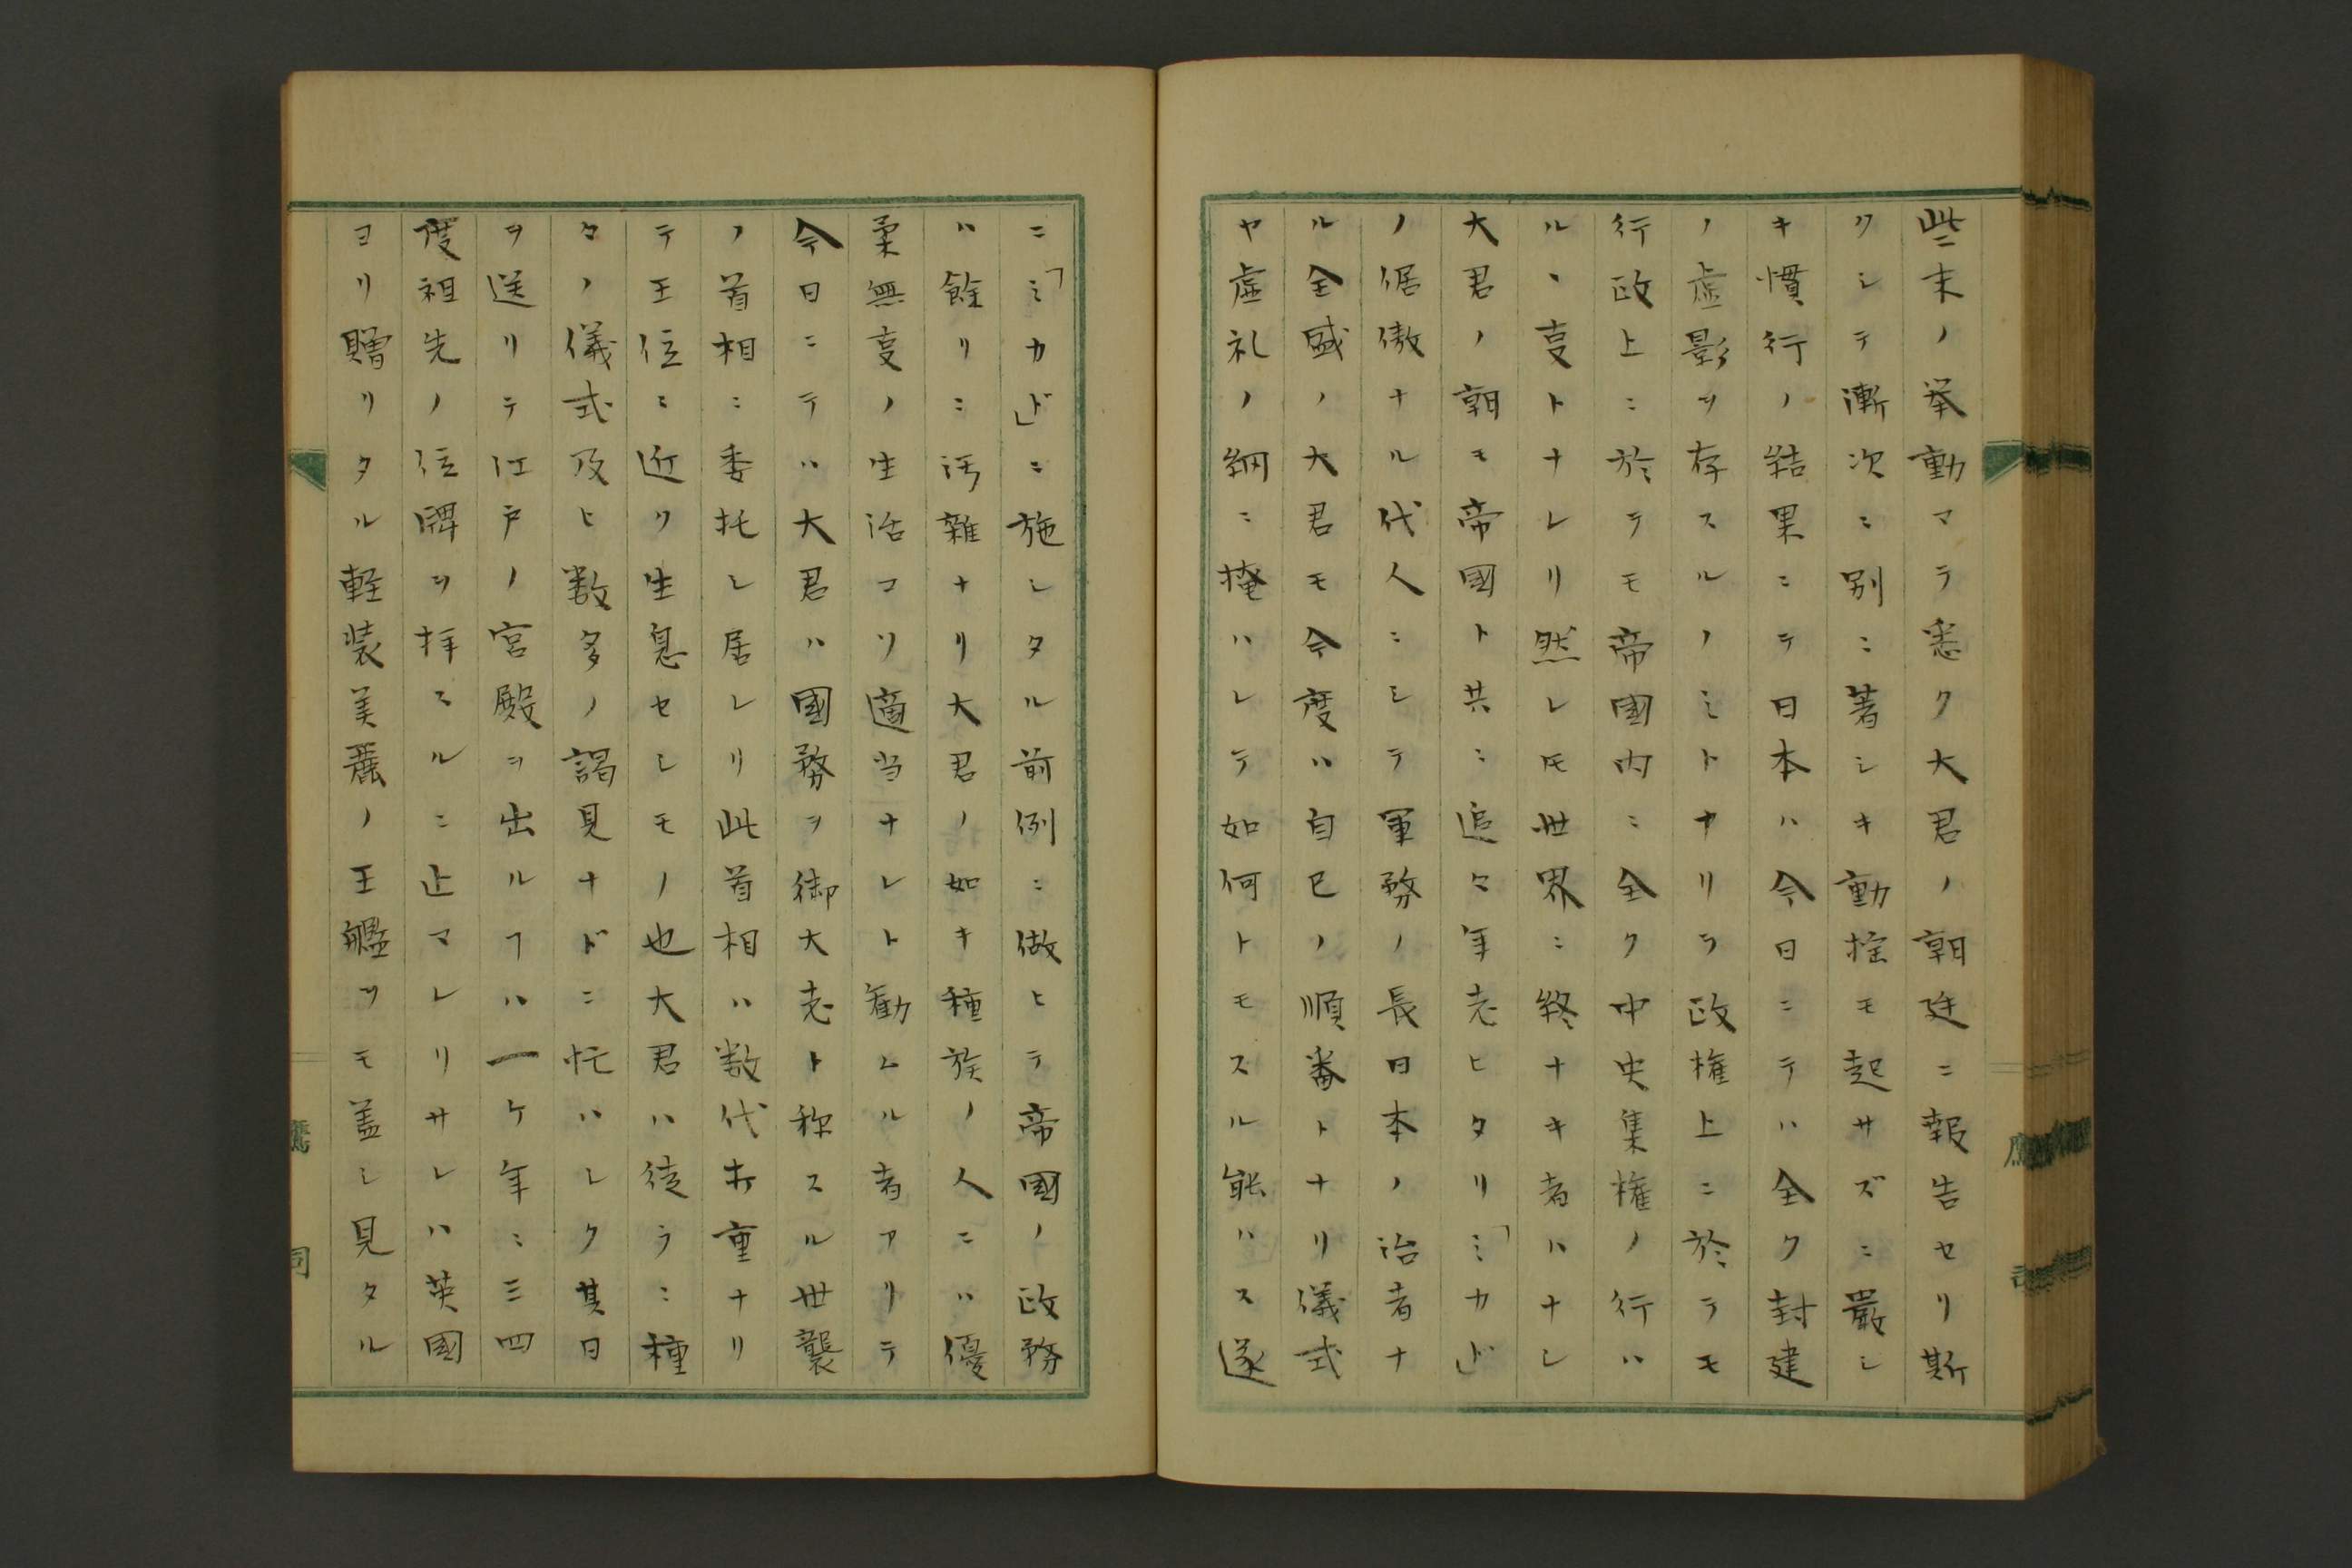 些末ノ挙動マテ悉ク大君ノ朝廷ニ報告セリ斯
クシテ漸次ニ別ニ著シキ動揺モ起サズニ厳シ
キ慣行ノ結果ニテ日本ハ今日ニテハ全ク封建
ノ虚影ヲ存スルノミトナリテ政権上ニ於テモ
行政上ニ於テモ帝國内ニ全ク中央集権ノ行ハ
ルヽ事トナレリ然レモ世界ニ終ナキ者ハナシ
大君ノ朝モ帝國ト共ニ追々年老ヒタリ「ミカド」
ノ倨傲ナル代人ニシテ軍務ノ長日本ノ治者ナ
ル全盛ノ大君モ今度ハ自己ノ順番トナリ儀式
ヤ虚礼ノ網ニ掩ハレテ如何トモスル能ハス遂
ニ「ミカド」ニ施シタル前例ニ倣ヒテ帝國ノ政務
ハ餘リニ汚雑ナリ大君ノ如キ種族ノ人ニハ優
柔無事ノ生活コソ適当ナレト勧ムル者アリテ
今日ニテハ大君ハ國務ヲ御大老ト称スル世襲
ノ首相ニ委托シ居レリ此首相ハ数代打重ナリ
テ王位ニ近ク生息セシモノ也大君ハ徒ラニ種
々ノ儀式及ヒ数多ノ謁見ナドニ忙ハシク其日
ヲ送リテ江戸ノ宮殿ヲ出ルヿハ一ケ年ニ三四
度祖先ノ位牌ヲ拝スルニ止マレリサレハ英國
ヨリ贈リタル軽装美麗ノ王艦ヲモ蓋シ見タル